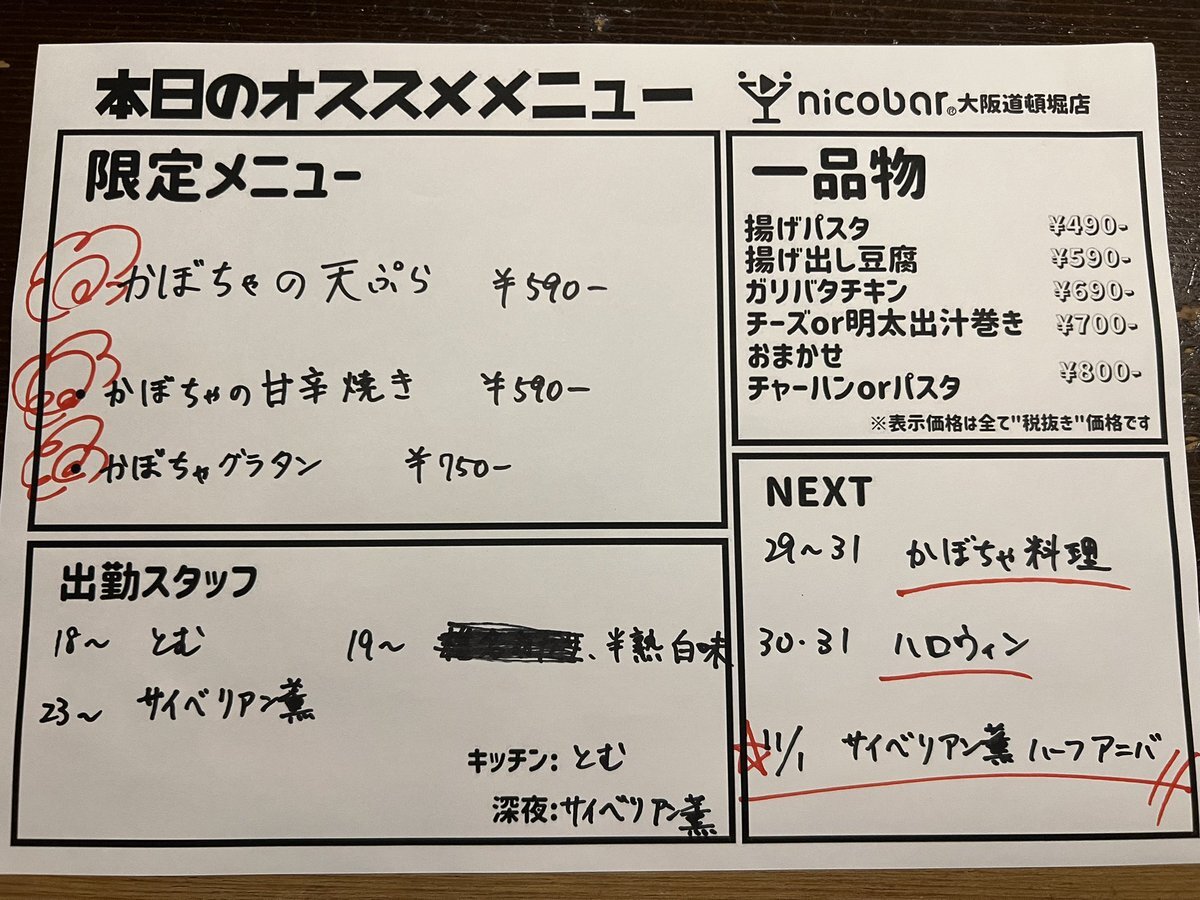 本日のオススメメニュー
nicobar®大阪道頓堀店
限定メニュー
かぼちゃの天ぷら ¥590-
・かぼちゃの甘辛焼き ¥590-
・かぼちゃグラタン ¥750-
一品物
揚げパスタ ¥490-
揚げ出し豆腐 ¥590-
ガリバタチキン ¥690-
チーズor明太出汁巻き ¥700-
おまかせ
チャーハンorパスタ ¥800-
※表示価格は全て"税抜き"価格です
出勤スタッフ
18〜 とむ 19〜 、半熟白味
23〜 サイベリアン薫
キッチン: とむ
深夜:サイベリアン薫
NEXT
29〜31 かぼちゃ料理
30・31 ハロウィン
☆11/1 サイベリアン薫 ハーフアニバ